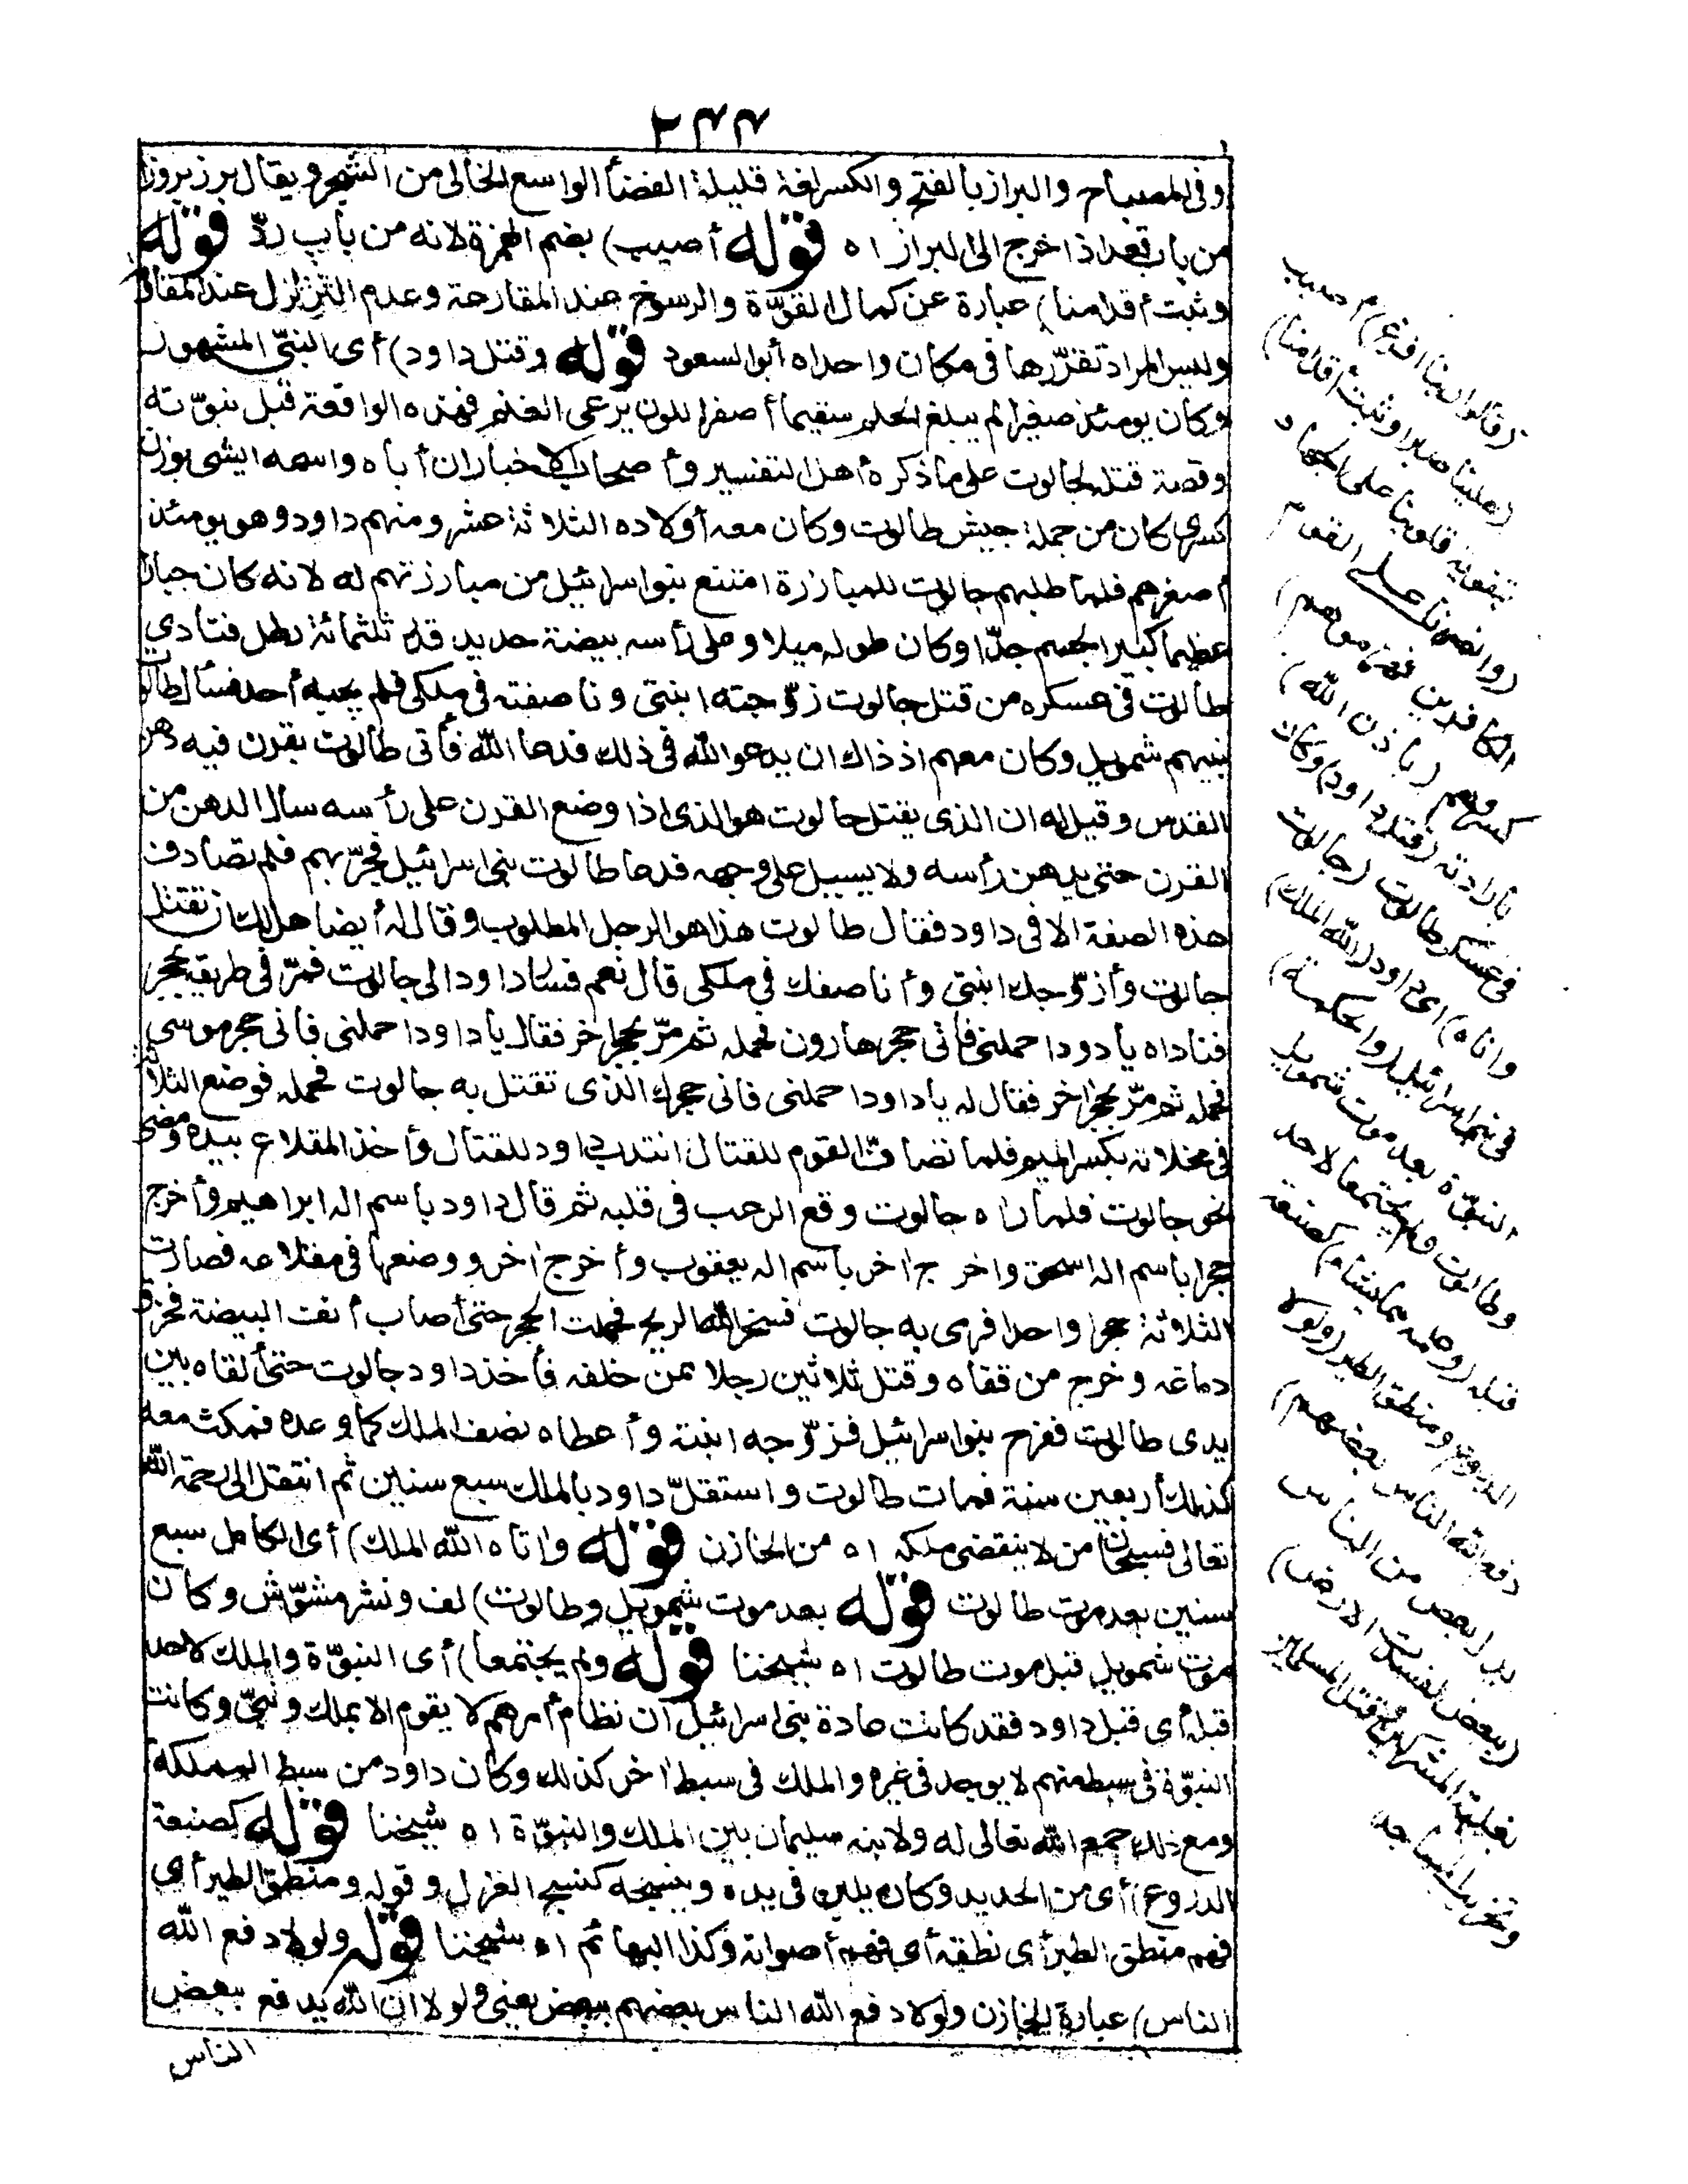 ٢٣٣
وفي المصباح والبراز بالفتح والكسر لغة قليلة الفضأ الواسع الخالى من الشجر ويقال برز بروزا
من باب قعد اذا خرج الى البراز اه قوله أصيب) بضم الهمزة لانه من باب ردّ قوله
وثبت أقدامنا) عبارة عن كمال القوّة والرسوخ عند المقارعة وعدم التزلزل عند المقاو
وليس المراد تقرّرها فى مكان واحد اه أبو السعود قوله وقتل داود) أى النبىّ المشهور
وكان يومئذ صغيرا لم يبلغ الحلم سقيما أصفر اللون يرعى الغنم فهذه الواقعة قبل نبوّته
وقصة قتله لجالوت على ما ذكره أهل التفسير وأصحاب الاخبار ان أباه واسمه ايشى بوزن
كسرى كان من جملة جيش طالوت وكان معه أولاده الثلاثة عشر ومنهم داود وهو يومئذ
أصغرهم فلما طلبهم جالوت للمبارزة امتنع بنوا سرائيل من مبارزتهم له لانه كان جبارا
عظيما كبير الجسم جدّا وكان طوله ميلا وعلى رأسه بيضة حديد قدر ثلثمائة رطل فنادى
طالوت فى عسكره من قتل جالوت زوّجته ابنتى وناصفته فى ملكى فلم يجبه أحد فسأل طالوت
نبيهم شمويل وكان معهم اذ ذاك ان يدعو الله فى ذلك فدعا الله فأتى طالوت بقرن فيه دهن
القدس وقيل له ان الذى يقتل جالوت هو الذى اذا وضع القرن على رأسه سال الدهن من
القرن حتى يدهن رأسه ولا يسيل على وجهه فدعا طالوت بنى اسرائيل فجرّبهم فلم تصادف
هذه الصفة الا فى داود فقال طالوت هذا هو الرجل المطلوب وقال له أيضا هل لك ان تقتل
جالوت وأزوّجك ابنتى وأناصفك فى ملكى قال نعم فسار داود الى جالوت فمرّ فى طريقه بحجر
فناداه يا دود احملنى فانى حجر هارون فحمله ثم مرّ بحجر اخر فقال يا داود احملنى فانى حجر موسى
فحمله ثم مرّ بحجر اخر فقال له يا داود احملنى فانى حجرك الذى تقتل به جالوت فحمله فوضع الثلاثة
فى مخلاته بكسر الميم فلما تصافّ القوم للقتال انتدب داود للقتال وأخذ المقلاع بيده ومضى
نحو جالوت فلما راه جالوت وقع الرعب فى قلبه ثم قال داود باسم اله ابراهيم وأخرج
حجرا باسم اله اسحق واخرج اخر باسم اله يعقوب وأخرج اخر ووضعها فى مقلاعه فصارت
الثلاثة حجرا واحدا فرمى به جالوت فسخر الله الريح فحملت الحجر حتى أصاب أنف البيضة فخرق
دماغه وخرج من قفاه وقتل ثلاثين رجلا ممن خلفه فأخذ داود جالوت حتى ألقاه بين
يدى طالوت ففرح بنوا سرائيل فزوّجه ابنته وأعطاه نصف الملك كما وعده فمكث معه
كذلك أربعين سنة فمات طالوت واستقلّ داود بالملك سبع سنين ثم انتقل الى رحمة الله
تعالى فسبحان من لا ينقضى ملكه اه من الخازن قوله واتاه الله الملك) أى الكامل سبع
سنين بعد موت طالوت قوله بعد موت شمويل وطالوت) لف ونشر مشوّش وكان
موت شمويل قبل موت طالوت اه شيخنا قوله ولم يجتمعا) أى النبوّة والملك لاحد
قبله أى قبل داود فقد كانت عادة بنى اسرائيل ان نظام أمرهم لا يقوم الا بملك ونبىّ وكانت
النبوّة فى سبط منهم لا يوجد فى غيره والملك فى سبط اخر كذلك وكان داود من سبط المملكة
ومع ذلك جمع الله تعالى له ولابنه سليمان بين الملك والنبوّة اه شيخنا قوله كصنعة
الدروع) أى من الحديد وكان يلين فى يده وينسجه كنسج الغزل وقوله ومنطق الطير أى
فهم منطق الطير أى نطقه أى فهم أصواته وكذا البهائم اه شيخنا قوله ولولا دفع الله
الناس) عبارة الخازن ولولا دفع الله الناس بعضهم ببعض يعنى ولولا ان الله يدفع ببعض
الناس
(قالوا ربنا افرغ) أصبب
(علينا صبرا وثبت أقدامنا)
بتقوية قلوبنا على الجهاد
(وانصرنا على القوم
الكافرين فهزموهم)
كسروهم (باذن الله)
بارادته (وقتل داود) وكان
فى عسكر طالوت (جالوت
واتاه) اى داود (الله الملك)
فى بنى اسرائيل (والحكمة)
النبوّة بعد موت شمويل
وطالوت ولم يجتمعا لاحد
قبله (وعلمه مما يشاء) كصنعة
الدروع ومنطق الطير (ولولا
دفع الله الناس بعضهم)
بدل بعض من الناس
(ببعض لفسدت الارض)
بغلبة المشركين وقتل المسلمين
وتخريب المساجد